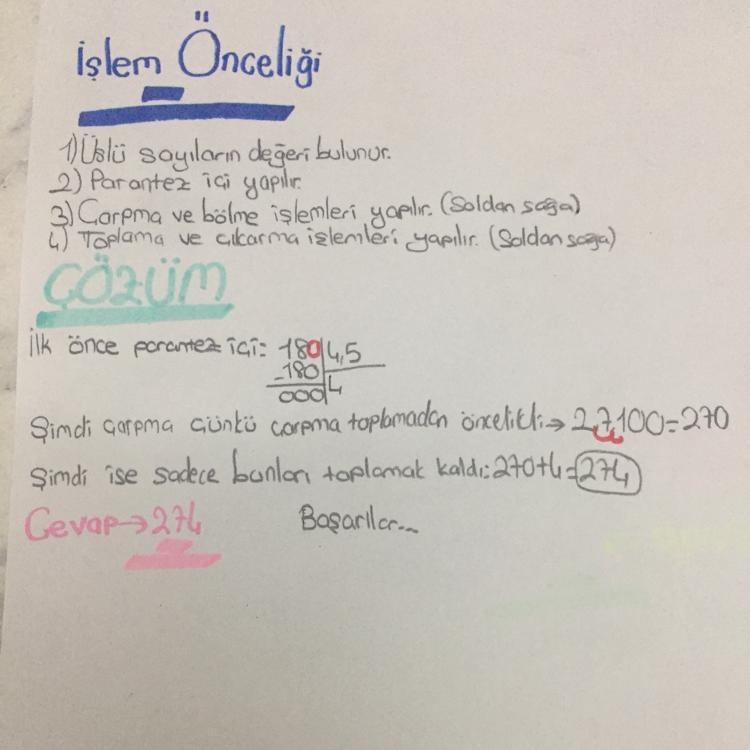 İşlem Önceliği
1) Üslü sayıların değeri bulunur.
2) Parantez içi yapılır.
3) Çarpma ve bölme işlemleri yapılır. (Soldan sağa)
4) Toplama ve çıkarma işlemleri yapılır. (Soldan sağa)
ÇÖZÜM
İlk önce parantez içi: 180 4,5
-180 4
000
Şimdi çarpma çünkü çarpma toplamadan öncelikli→ 2,7.100=270
Şimdi ise sadece bunları toplamak kaldı: 270+4=274
Cevap→274 Başarılar...